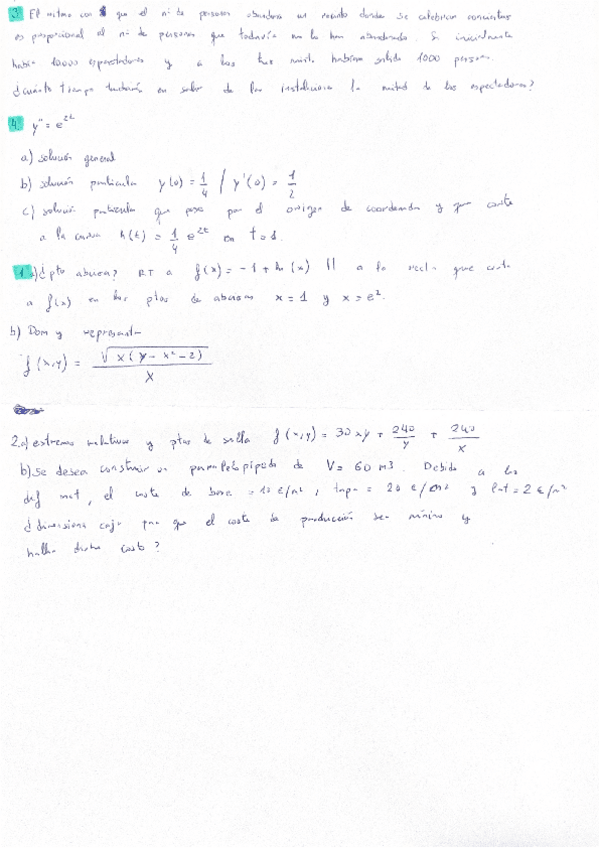 3. El ritmo con el que el nº de personas abandona un recinto donde se celebran conciertos
es proporcional al nº de personas que todavía no lo han abandonado. Si inicialmente
había 10000 espectadores y a los tres minutos habían salido 1000 personas.
¿Cuánto tiempo tardarán en salir de las instalaciones la mitad de los espectadores?
4. y'' = e^2t
a) solución general
b) solución particular y(0) = 1/4 / y'(0) = 1/2
c) solución particular que pase por el origen de coordenadas y que corte
a la curva h(t) = 1/4 e^2t en t=1.
1 a) ¿pto abscisa? RT a f(x) = -1 + ln(x) || a la recta que corta
a f(x) en los ptos de abscisas x = 1 y x = e².
b) Dom y representar
f(x,y) = √(x(y-x²-2)) / x
2.a) extremos relativos y ptos de silla f(x,y) = 30xy + 240/y + 240/x
b) Se desea construir un paralelepípedo de V = 60 m3. Debido a los
def mat, el coste de base = 10 €/m², tapa = 20 €/m² y lat = 2 €/m²
¿dimensiones caja para que el coste de producción sea mínimo y
hallar dicho costo?